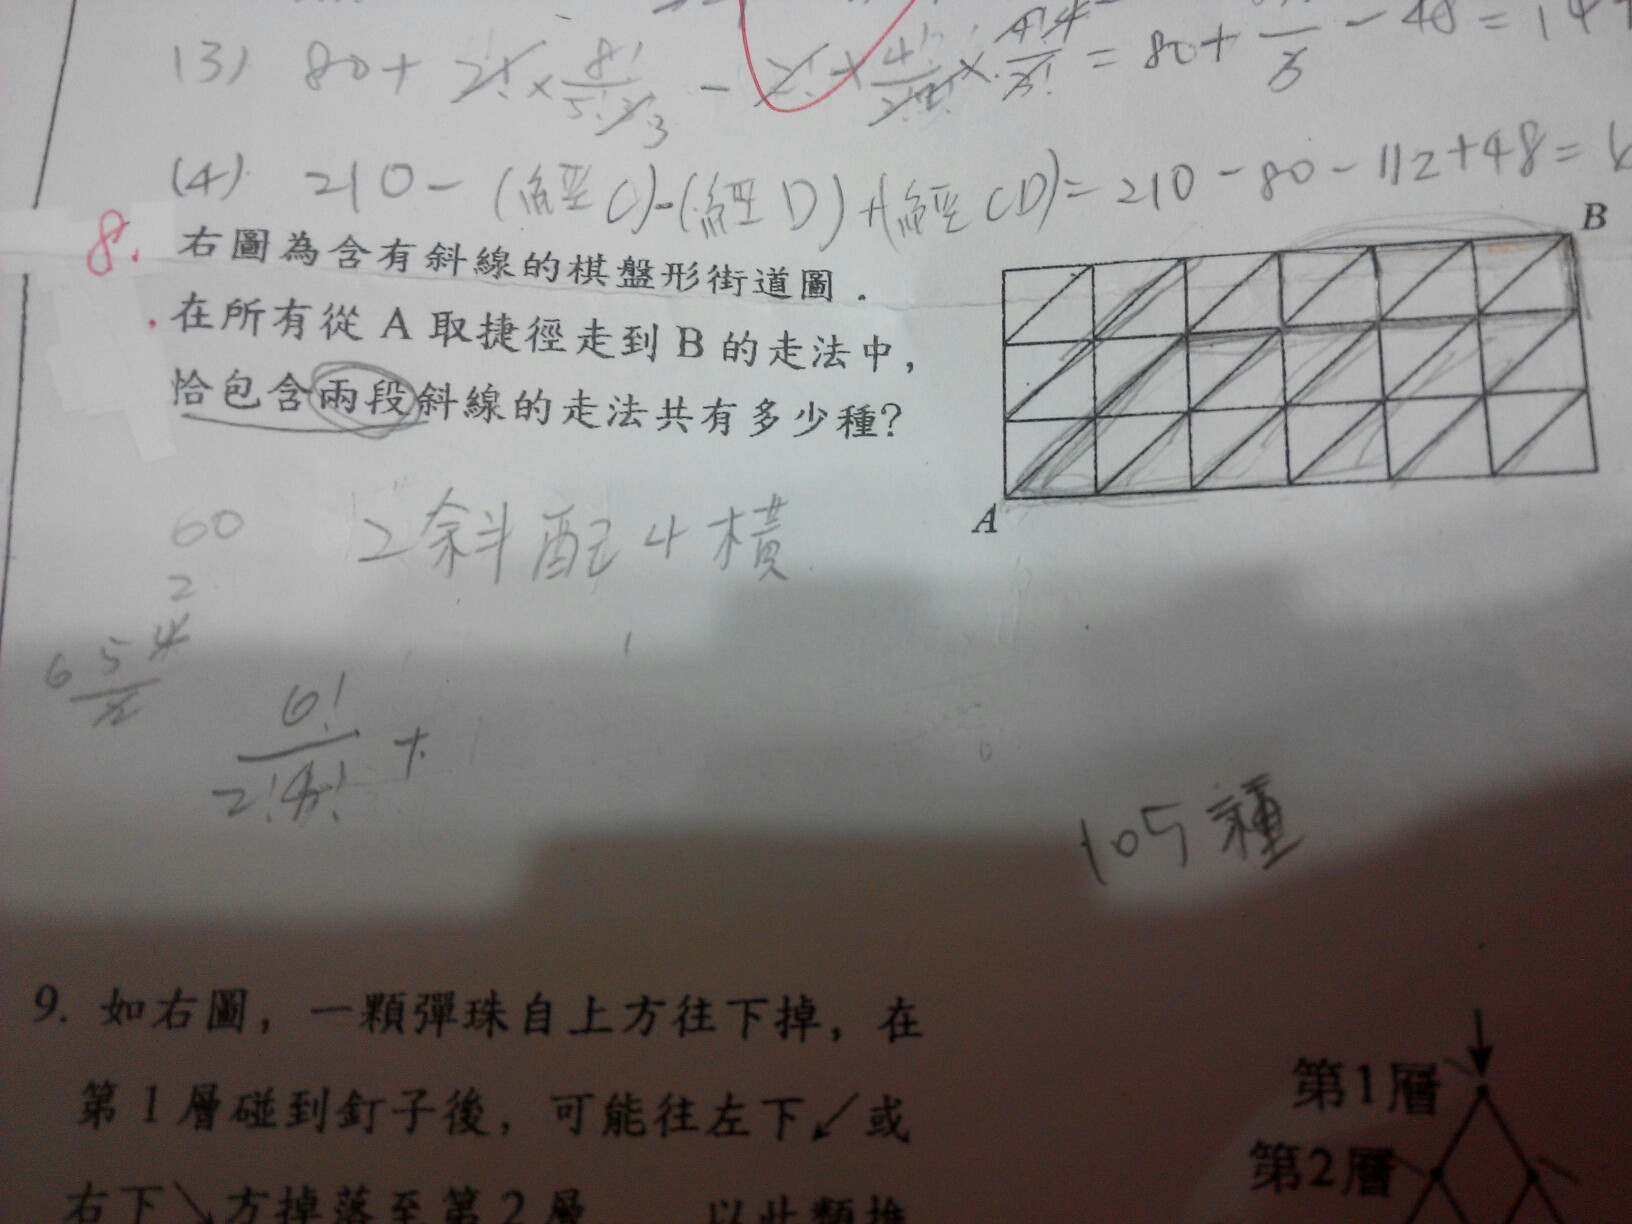 (3) 80 + 2! × 8!/5!3 - 2! × 4!/2!2! × 4!4/3! = 80 + /3 - 48 = 14
(4) 210 - (經C) - (經D) + (經CD) = 210 - 80 - 112 + 48 =
8. 右圖為含有斜線的棋盤形街道圖．
在所有從 A 取捷徑走到 B 的走法中，
恰包含兩段斜線的走法共有多少種？
B
A
60
2斜配4橫
2
6 5 4
2
6!/2!4! +
105種
9. 如右圖，一顆彈珠自上方往下掉，在
第 1 層碰到釘子後，可能往左下↙或
右下↘方掉落至第 2 層
以此類推
第1層
第2層